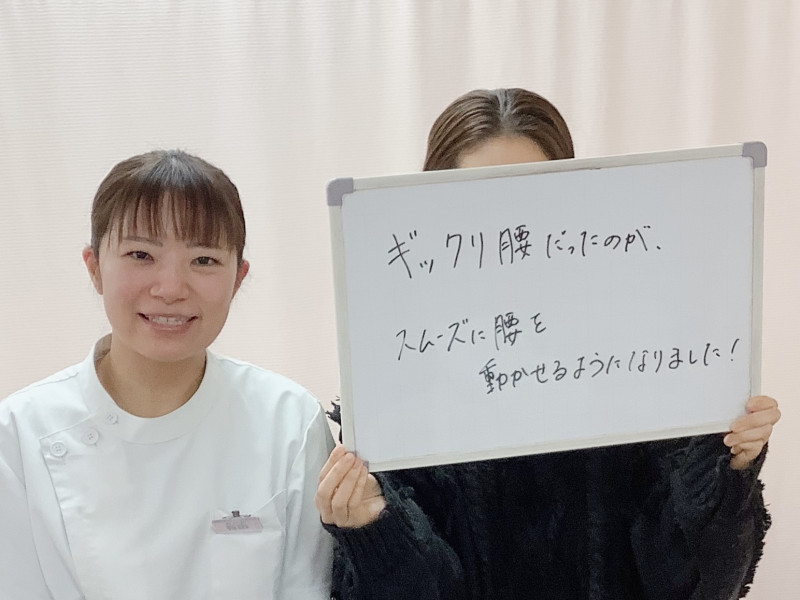 ギックリ腰だったのが、
スムーズに腰を
動かせるようになりました!